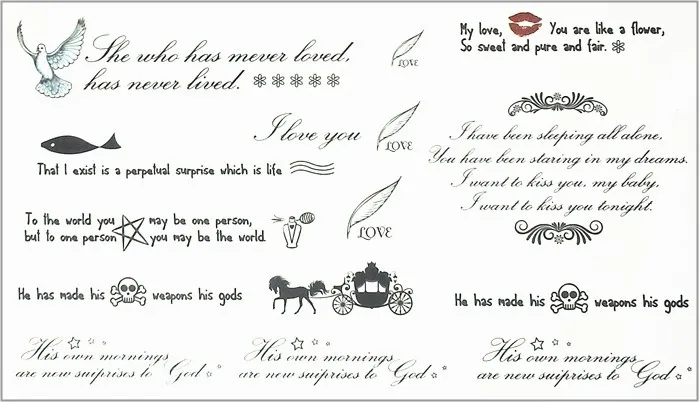 She who has mever loved,
has never lived.
LOVE
My love, You are like a flower,
So sweet and pure and fair.
I love you
LOVE
That I exist is a perpetual surprise which is life
I have been sleeping all alone,
You have been staring in my dreams.
I want to kiss you, my baby,
I want to kiss you tonight.
To the world you may be one person,
but to one person you may be the world
LOVE
He has made his weapons his gods
He has made his weapons his gods
His own mornings
are new suiprises to God
His own mornings
are new suiprises to God
His own mornings
are new suiprises to God